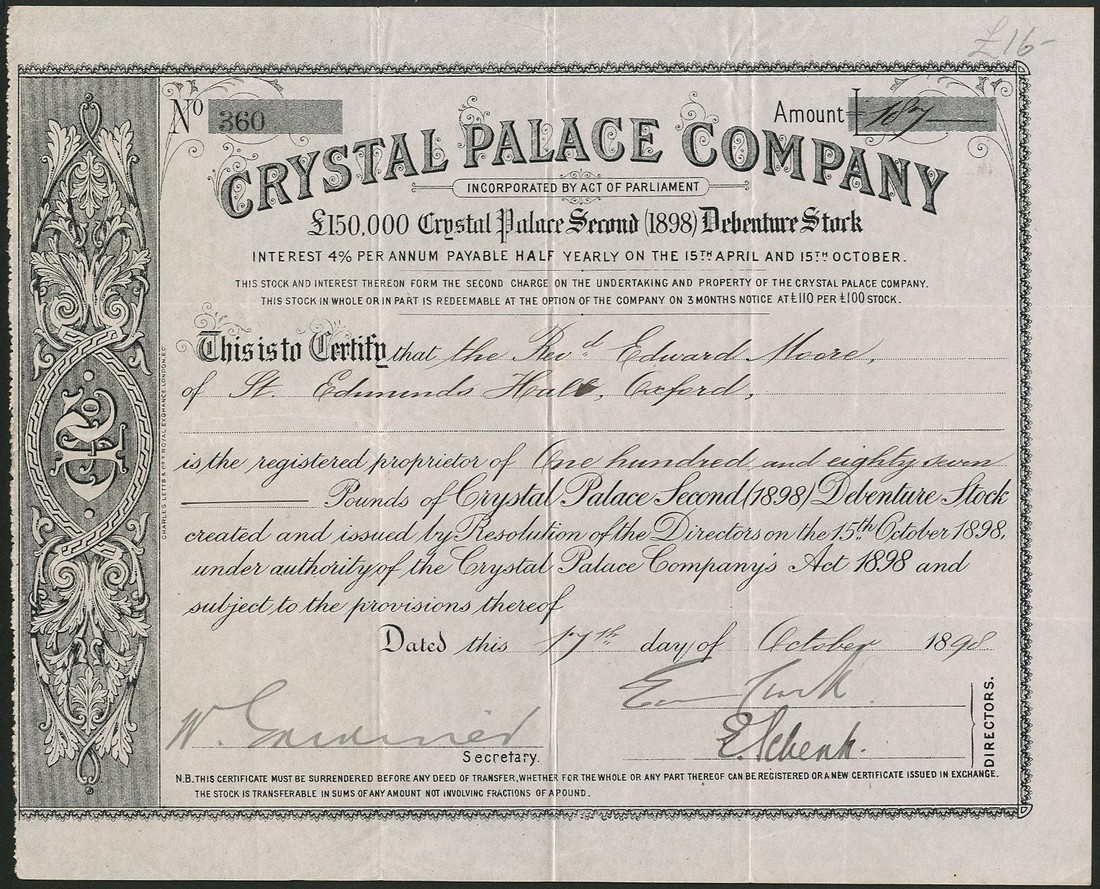 £16-
No 360
Amount £ 187
CRYSTAL PALACE COMPANY
INCORPORATED BY ACT OF PARLIAMENT
£150,000 Crystal Palace Second (1898) Debenture Stock
INTEREST 4% PER ANNUM PAYABLE HALF YEARLY ON THE 15TH APRIL AND 15TH OCTOBER.
THIS STOCK AND INTEREST THEREON FORM THE SECOND CHARGE ON THE UNDERTAKING AND PROPERTY OF THE CRYSTAL PALACE COMPANY.
THIS STOCK IN WHOLE OR IN PART IS REDEEMABLE AT THE OPTION OF THE COMPANY ON 3 MONTHS NOTICE AT £110 PER £100 STOCK.
This is to Certify that the Revd. Edward Moore,
of St. Edmunds Hall, Oxford,
is the registered proprietor of One hundred and eighty seven
Pounds of Crystal Palace Second (1898) Debenture Stock
created and issued by Resolution of the Directors on the 15th October 1898,
under authority of the Crystal Palace Company's Act 1898 and
subject to the provisions thereof
Dated this 17th day of October 1898
W. Gardiner
Secretary.
E. Schenk.
DIRECTORS.
N.B. THIS CERTIFICATE MUST BE SURRENDERED BEFORE ANY DEED OF TRANSFER, WHETHER FOR THE WHOLE OR ANY PART THEREOF CAN BE REGISTERED OR A NEW CERTIFICATE ISSUED IN EXCHANGE.
THE STOCK IS TRANSFERABLE IN SUMS OF ANY AMOUNT NOT INVOLVING FRACTIONS OF A POUND.
CHARLES LETTS & CO 3 ROYAL EXCHANGE, LONDON, E.C.